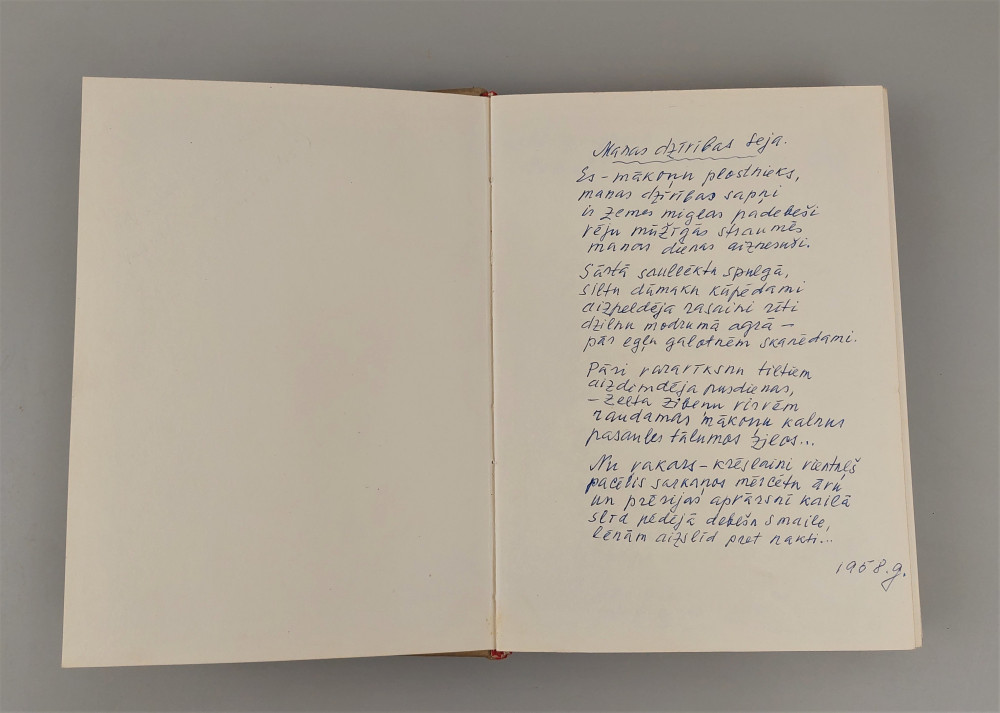 Manas dzīvības seja.
Es - mākoņu plostnieks,
manas dzīvības sapņi
ir zemes miglas padebeši
vēju mūžīgās straumēs
manas dienas aiznesuši.
Sārtā saullēktu spulgā,
siltu dūmaku kūpēdami
aizpeldēja rasaini rīti
dzilnu modrumā agrā –
pār egļu galotnēm skanēdami.
Pāri varavīksnu tiltiem
aizdimdēja pusdienas,
– zelta zibeņu virvēm
raudamas mākoņu kalnus
pasaules tālumos zilos...
Nu vakars – krēslaini vientuļš
pacēlis sarkanos mērcētu āru
un prērijas apvārsnī kailā
slīd pēdējā debešu smaile,
lēnām aizslīd pret nakti...
1958.g.